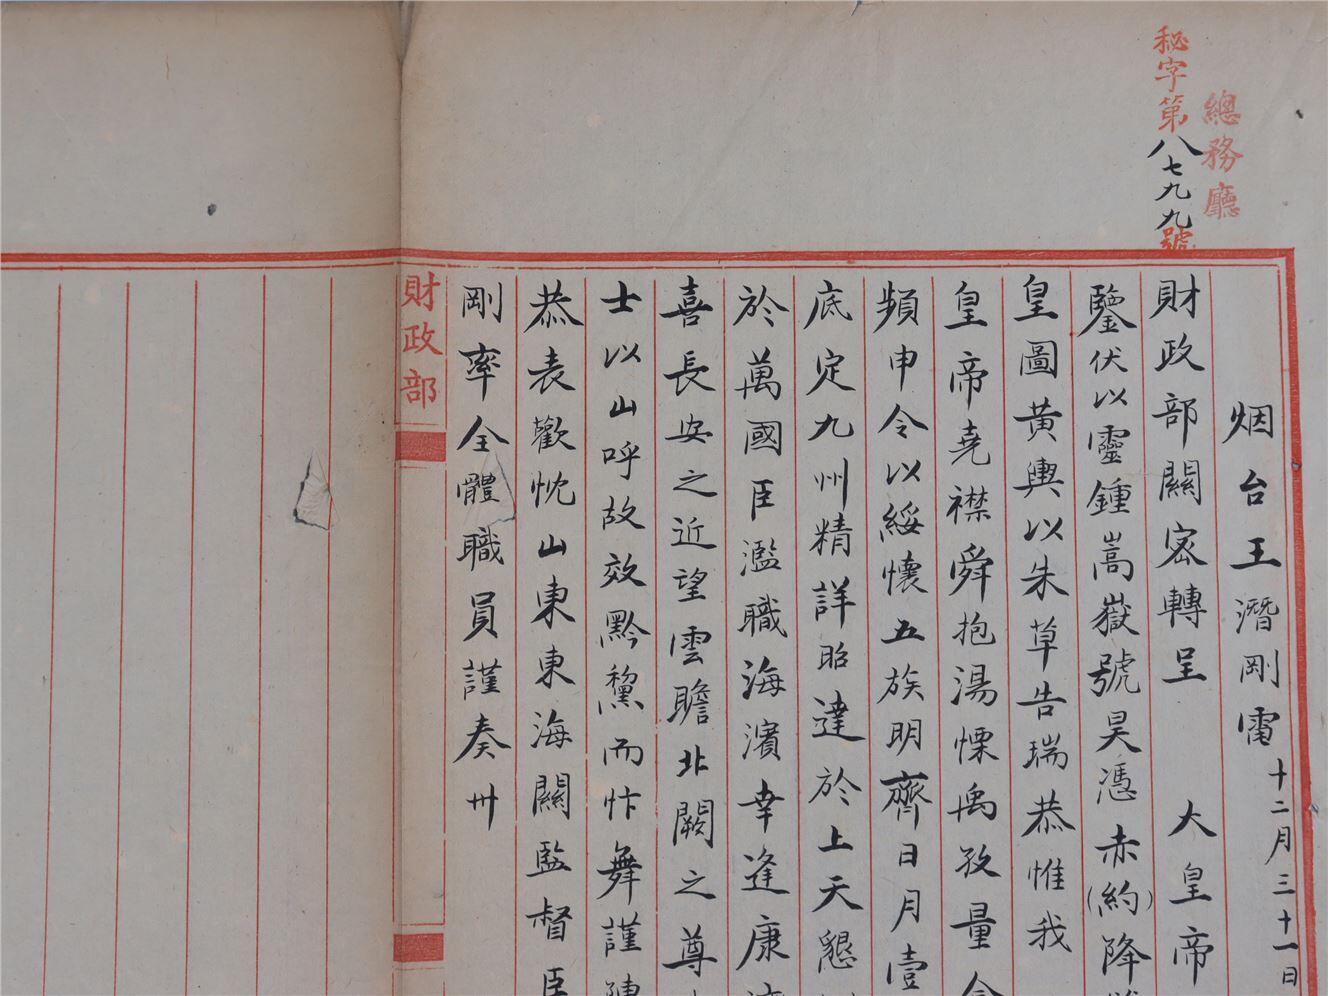 總務廳
秘字第八七九九號
烟台王潛剛電 十二月三十一日
財政部關宻轉呈 大皇帝
鑒伏以靈鍾嵩嶽號昊憑赤(約)降
皇圖黃輿以朱草告瑞恭惟我
皇帝堯襟舜抱湯慄禹孜量
頻申令以綏懷五族明齊日月壹
底定九州精詳昭達於上天懇
於萬國臣濫職海濱幸逢康
喜長安之近望雲瞻北闕之尊
士以山呼故效黔黧而忭舞謹
恭表歡忱山東東海關監督臣
剛率全體職員謹奏卅
財政部